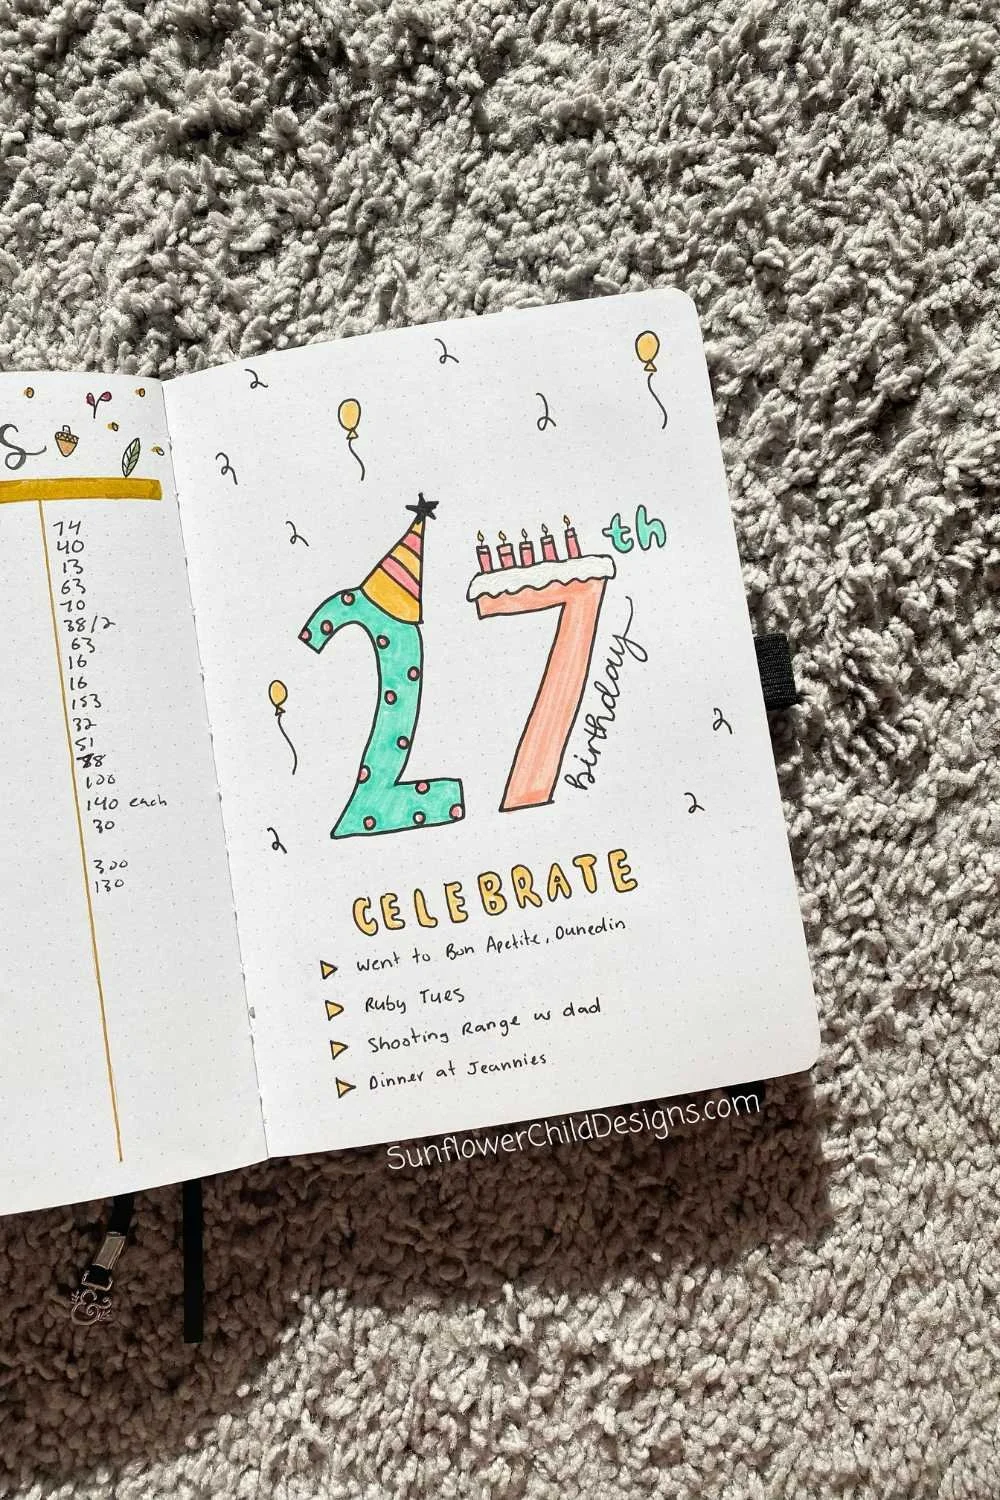 s
74
40
13
63
70
38/2
63
16
16
153
32
51
88
100
140 each
30
300
130
27th
birthday
CELEBRATE
Went to Bon Apetite, Dunedin
Ruby Tues
Shooting Range w dad
Dinner at Jeannies
SunflowerChildDesigns.com
&